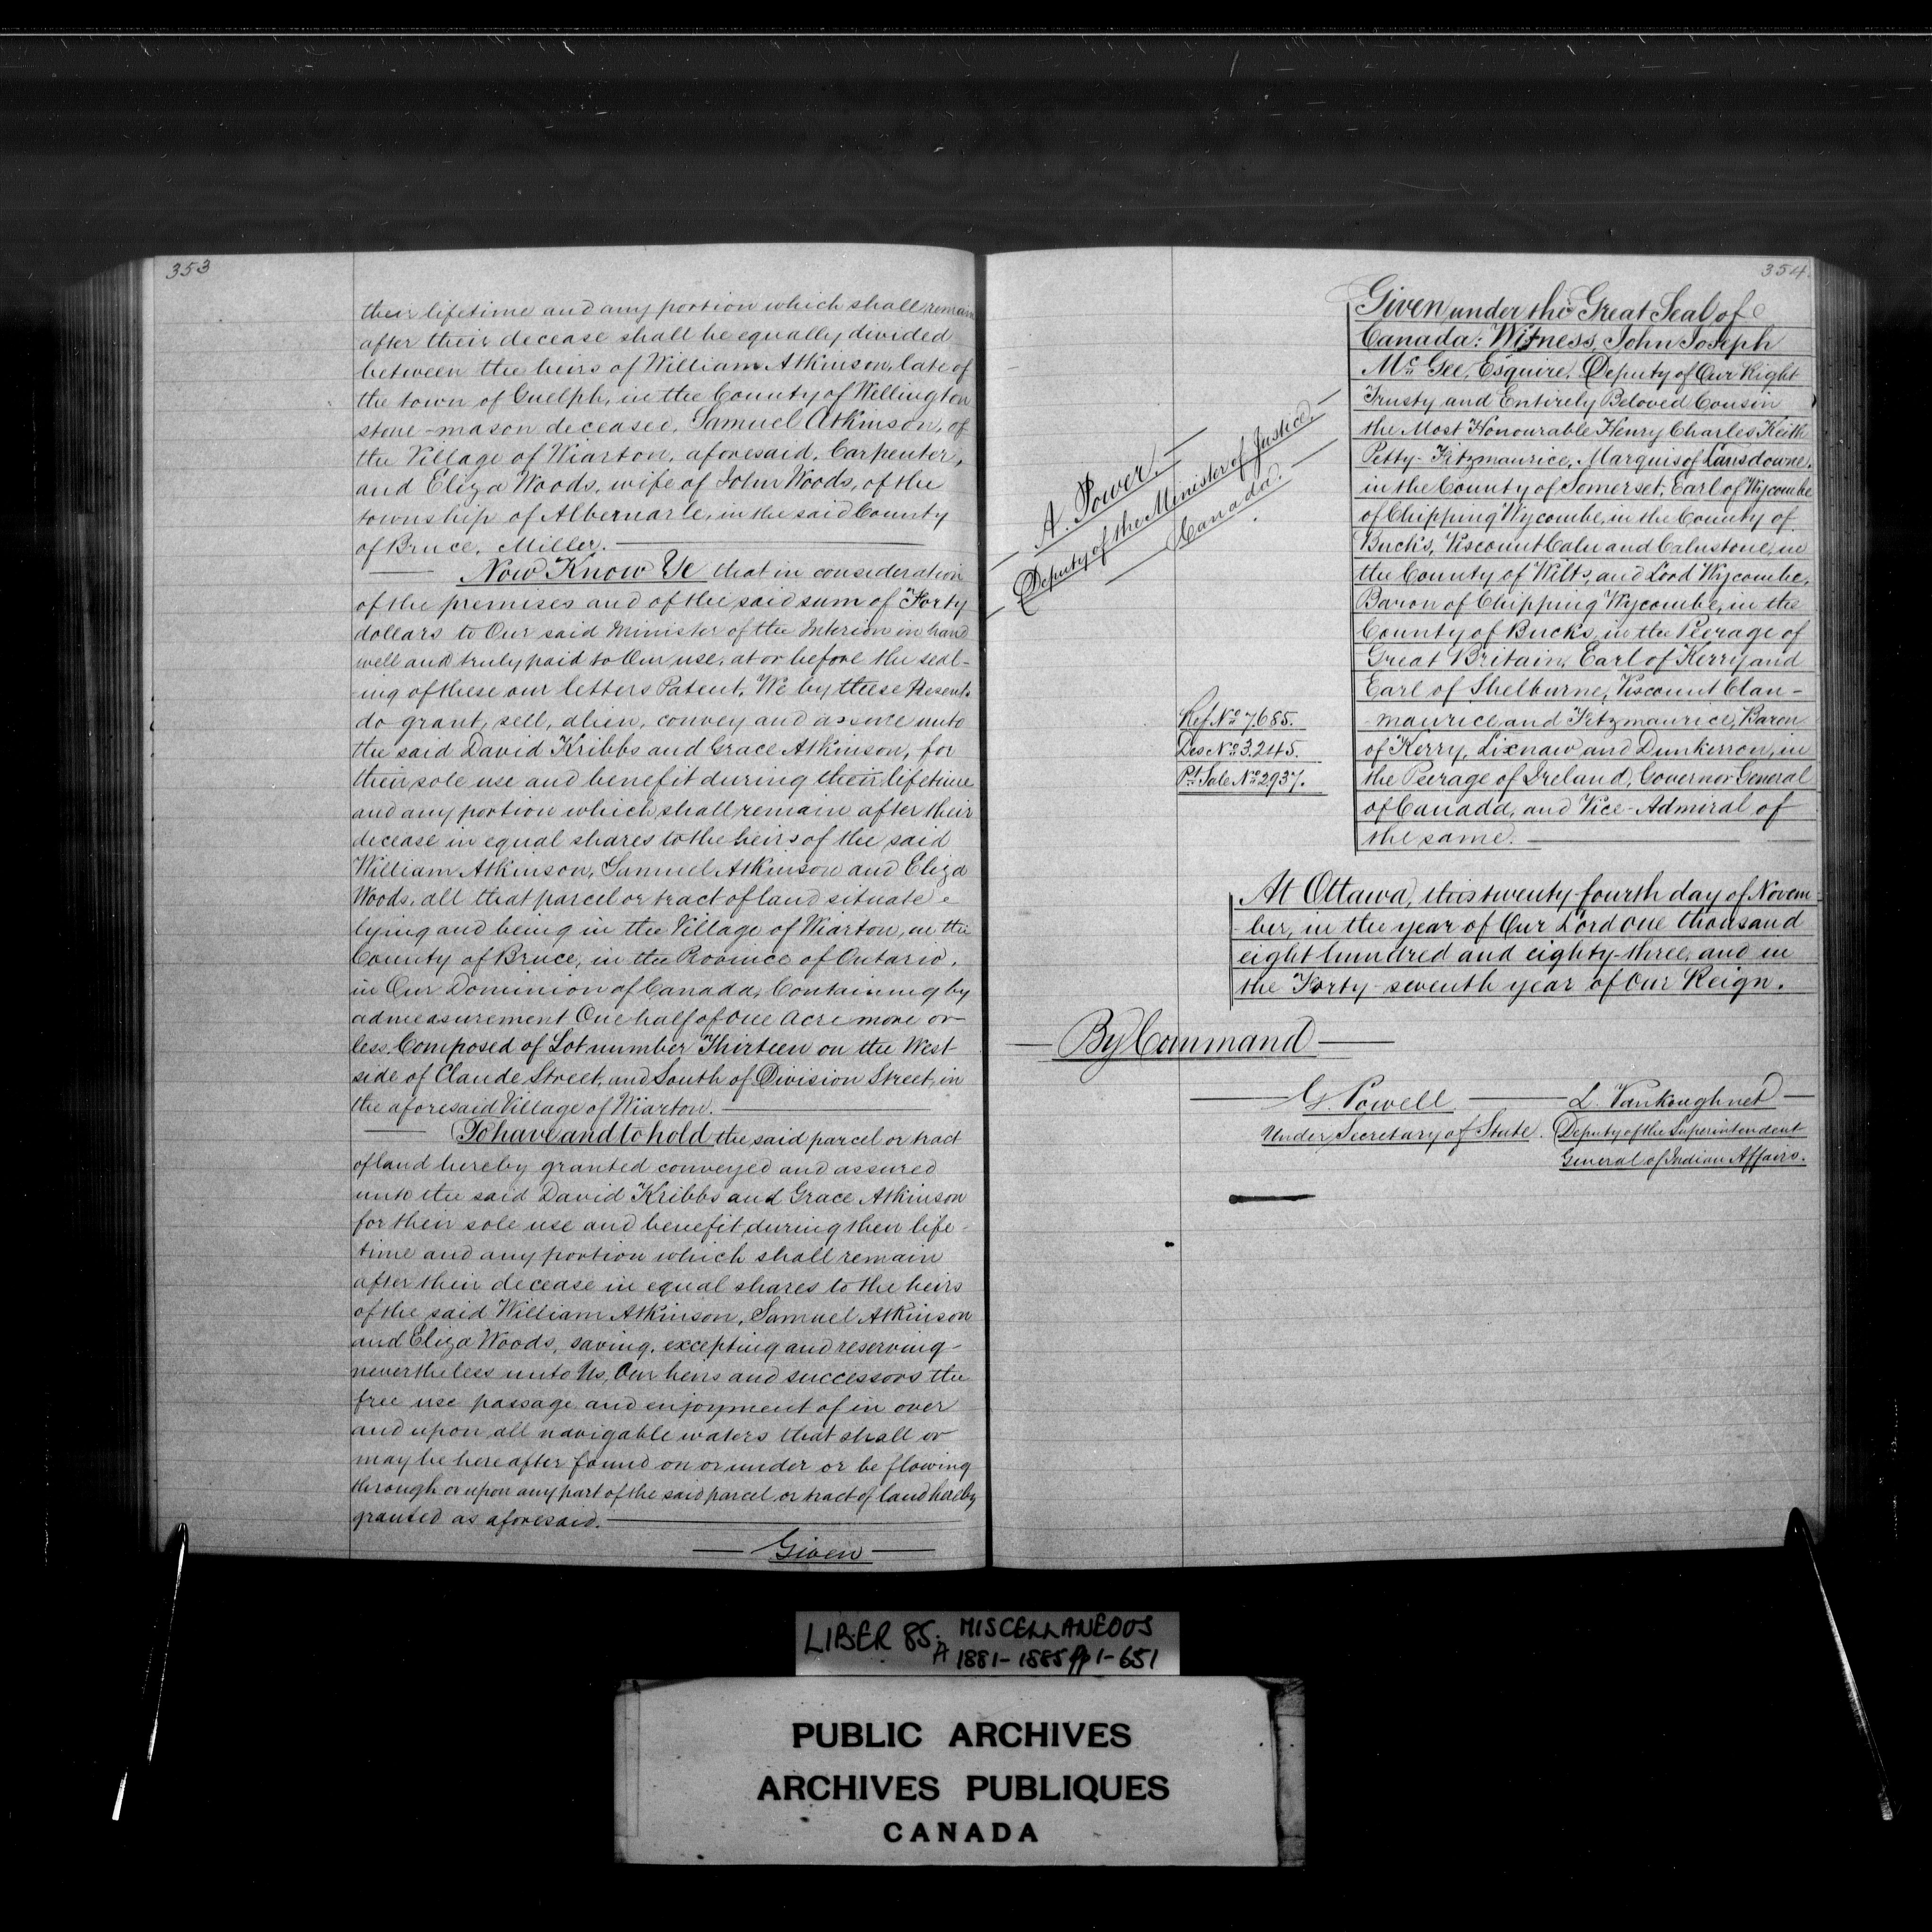 353
their lifetime and any portion which shall remain
after their decease shall be equally divided
between the heirs of William Atkinson, late of
the town of Guelph, in the County of Wellington
stone-mason deceased, Samuel Atkinson, of
the Village of Wiarton, aforesaid, Carpenter,
and Eliza Woods, wife of John Woods, of the
township of Albemarle, in the said County
of Bruce, Miller.
Now Know Ye that in consideration
of the premises and of the said sum of Forty
dollars to Our said Minister of the Interior in hand
well and truly paid to Our use, at or before the seal-
-ing of these our letters Patent, We by these Presents
do grant, sell, alien, convey and assure unto
the said David Kribbs and Grace Atkinson, for
their sole use and benefit during their lifetime
and any portion which shall remain after their
decease in equal shares to the heirs of the said
William Atkinson, Samuel Atkinson and Eliza
Woods, all that parcel or tract of land situate
lying and being in the Village of Wiarton, in the
County of Bruce, in the Province of Ontario,
in Our Dominion of Canada, Containing by
admeasurement One half of one Acre more or
less, Composed of Lot number Thirteen on the West
side of Claude Street, and South of Division Street, in
the aforesaid Village of Wiarton.
To have and to hold the said parcel or tract
of land hereby granted conveyed and assured
unto the said David Kribbs and Grace Atkinson
for their sole use and benefit during their life-
time and any portion which shall remain
after their decease in equal shares to the heirs
of the said William Atkinson, Samuel Atkinson
and Eliza Woods, saving, excepting and reserving
nevertheless unto Us, Our heirs and successors the
free use passage and enjoyment of in over
and upon all navigable waters that shall or
may be hereafter found on or under or be flowing
through or upon any part of the said parcel or tract of land hereby
granted as aforesaid.
Given
354.
Given under the Great Seal of
Canada: Witness, John Joseph
McGee, Esquire, Deputy of Our Right
Trusty and Entirely Beloved Cousin
the Most Honourable Henry Charles Keith
Petty-Fitzmaurice, Marquis of Lansdowne,
in the County of Somerset, Earl of Wycombe
of Chipping Wycombe, in the County of
Bucks, Viscount Caln and Calnstone, in
the County of Wilts, and Lord Wycombe,
Baron of Chipping Wycombe, in the
County of Bucks, in the Peerage of
Great Britain, Earl of Kerry and
Earl of Shelburne, Viscount Clan-
-maurice and Fitzmaurice, Baron
of Kerry, Lixnaw and Dunkerron, in
the Peerage of Ireland, Governor General
of Canada, and Vice-Admiral of
the same.
A. Power.
Deputy of the Minister of Justice.
Canada.
Ref No 7,685.
Des No 3,245.
Pt Sale No 2937.
At Ottawa, this twenty-fourth day of Novem-
-ber, in the year of Our Lord One thousand
eight hundred and eighty-three, and in
the Forty-seventh year of Our Reign.
By Command
G. Powell.
Under Secretary of State.
L. Vankoughnet
Deputy of the Superintendent
General of Indian Affairs.
LIBER 85. A MISCELLANEOUS
1881-1885 pp 1-651
PUBLIC ARCHIVES
ARCHIVES PUBLIQUES
CANADA